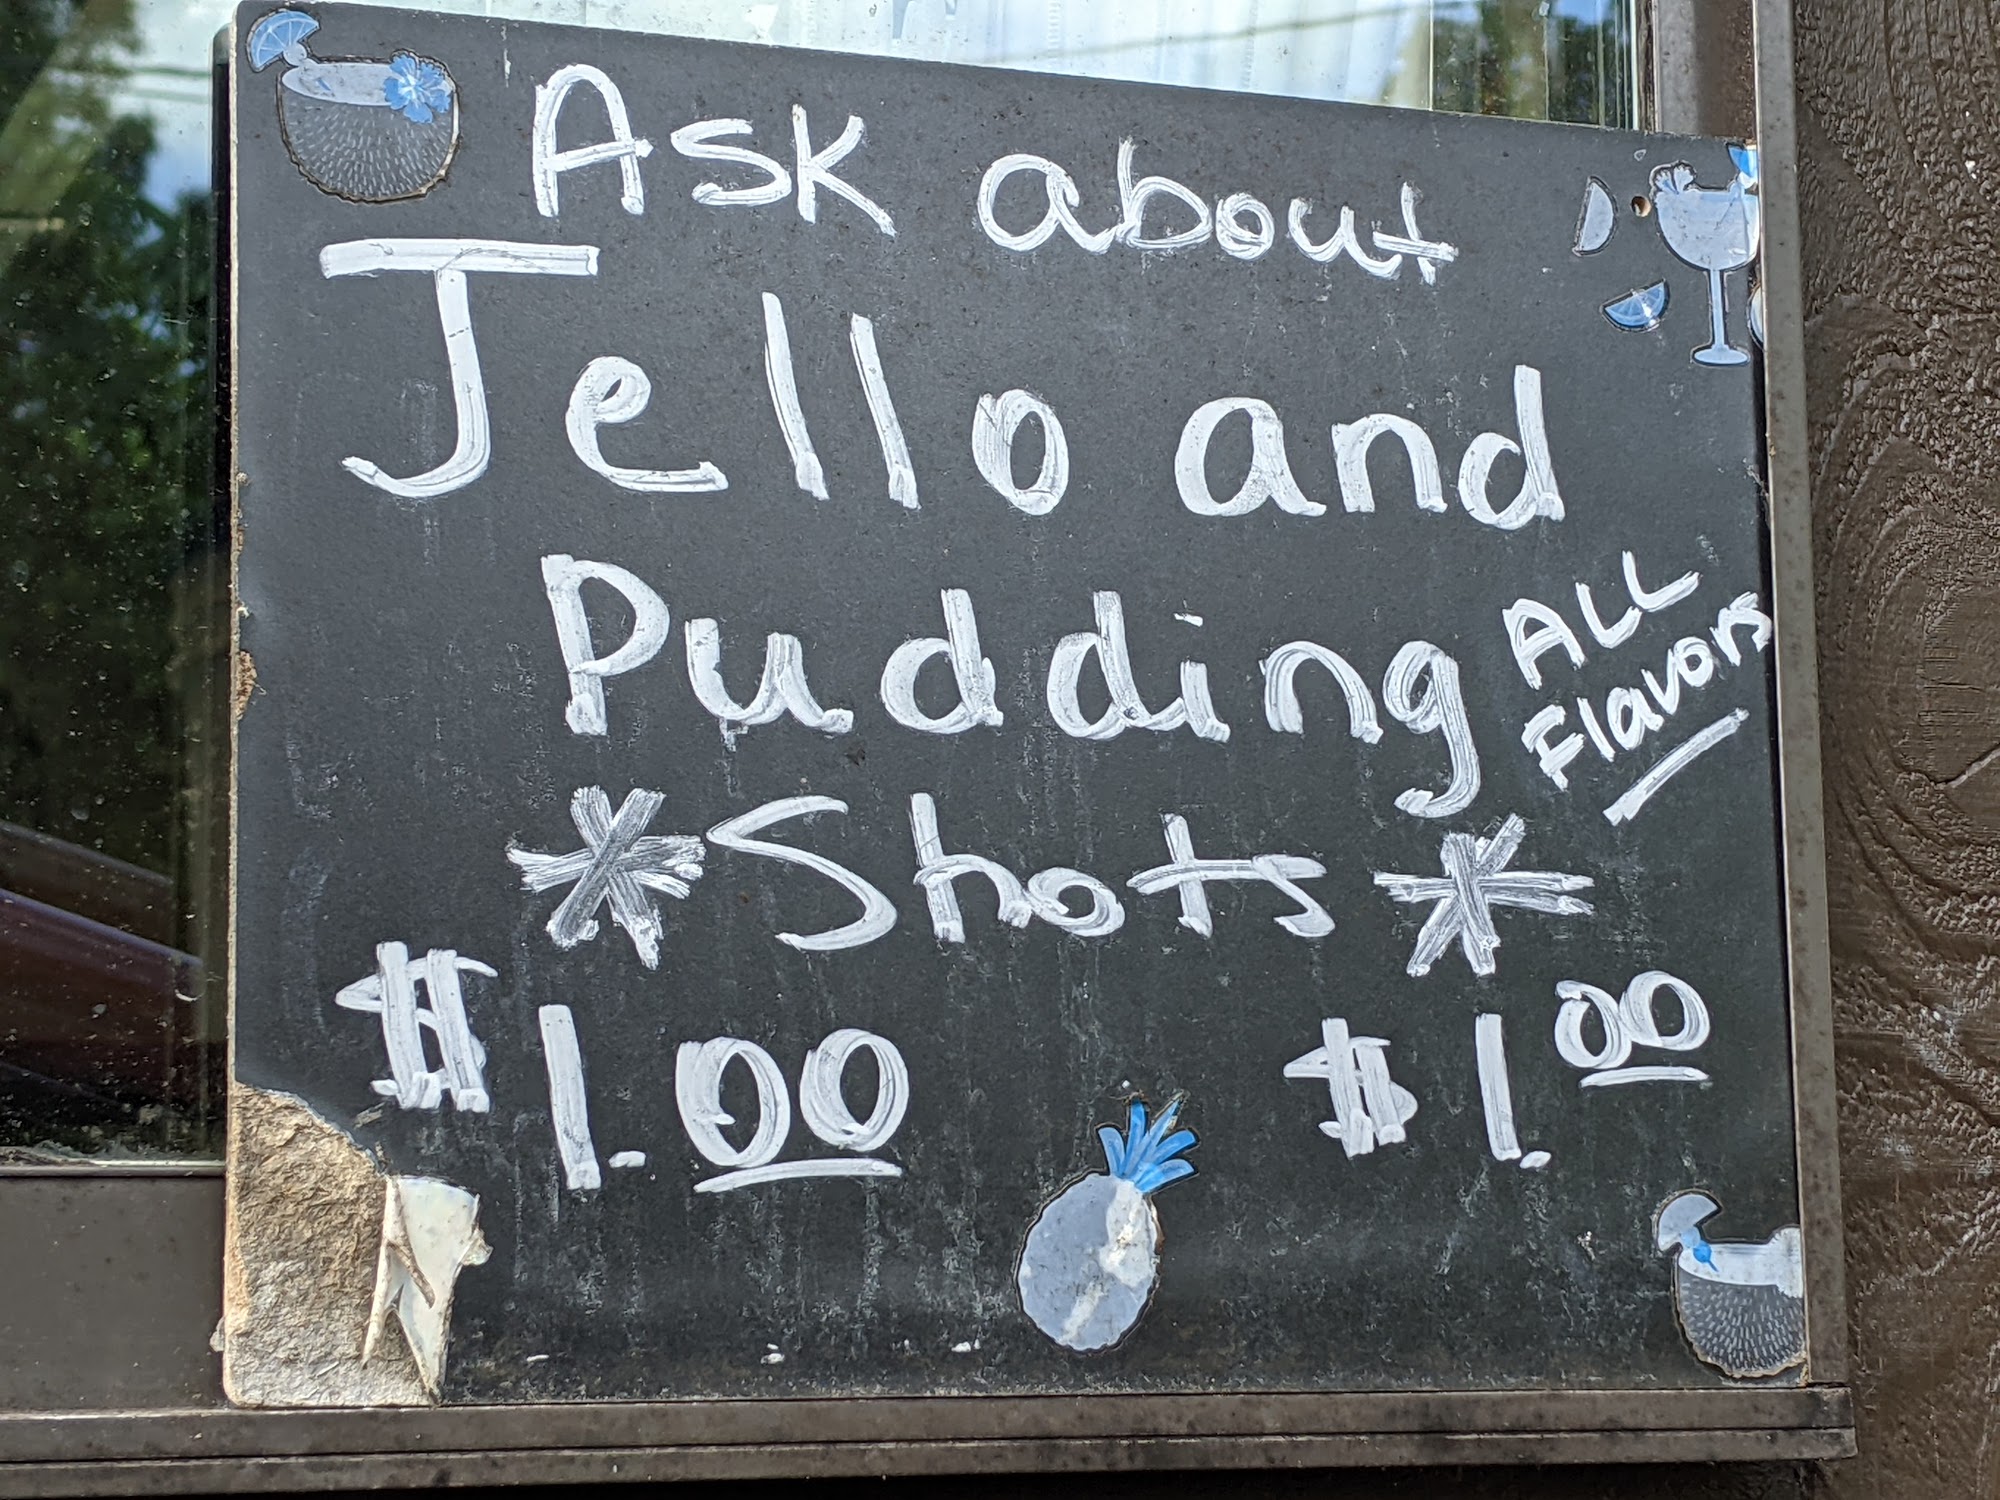 Ask about
Jello and
Pudding ALL
Flavors
*Shots*
$1.00 $1.00